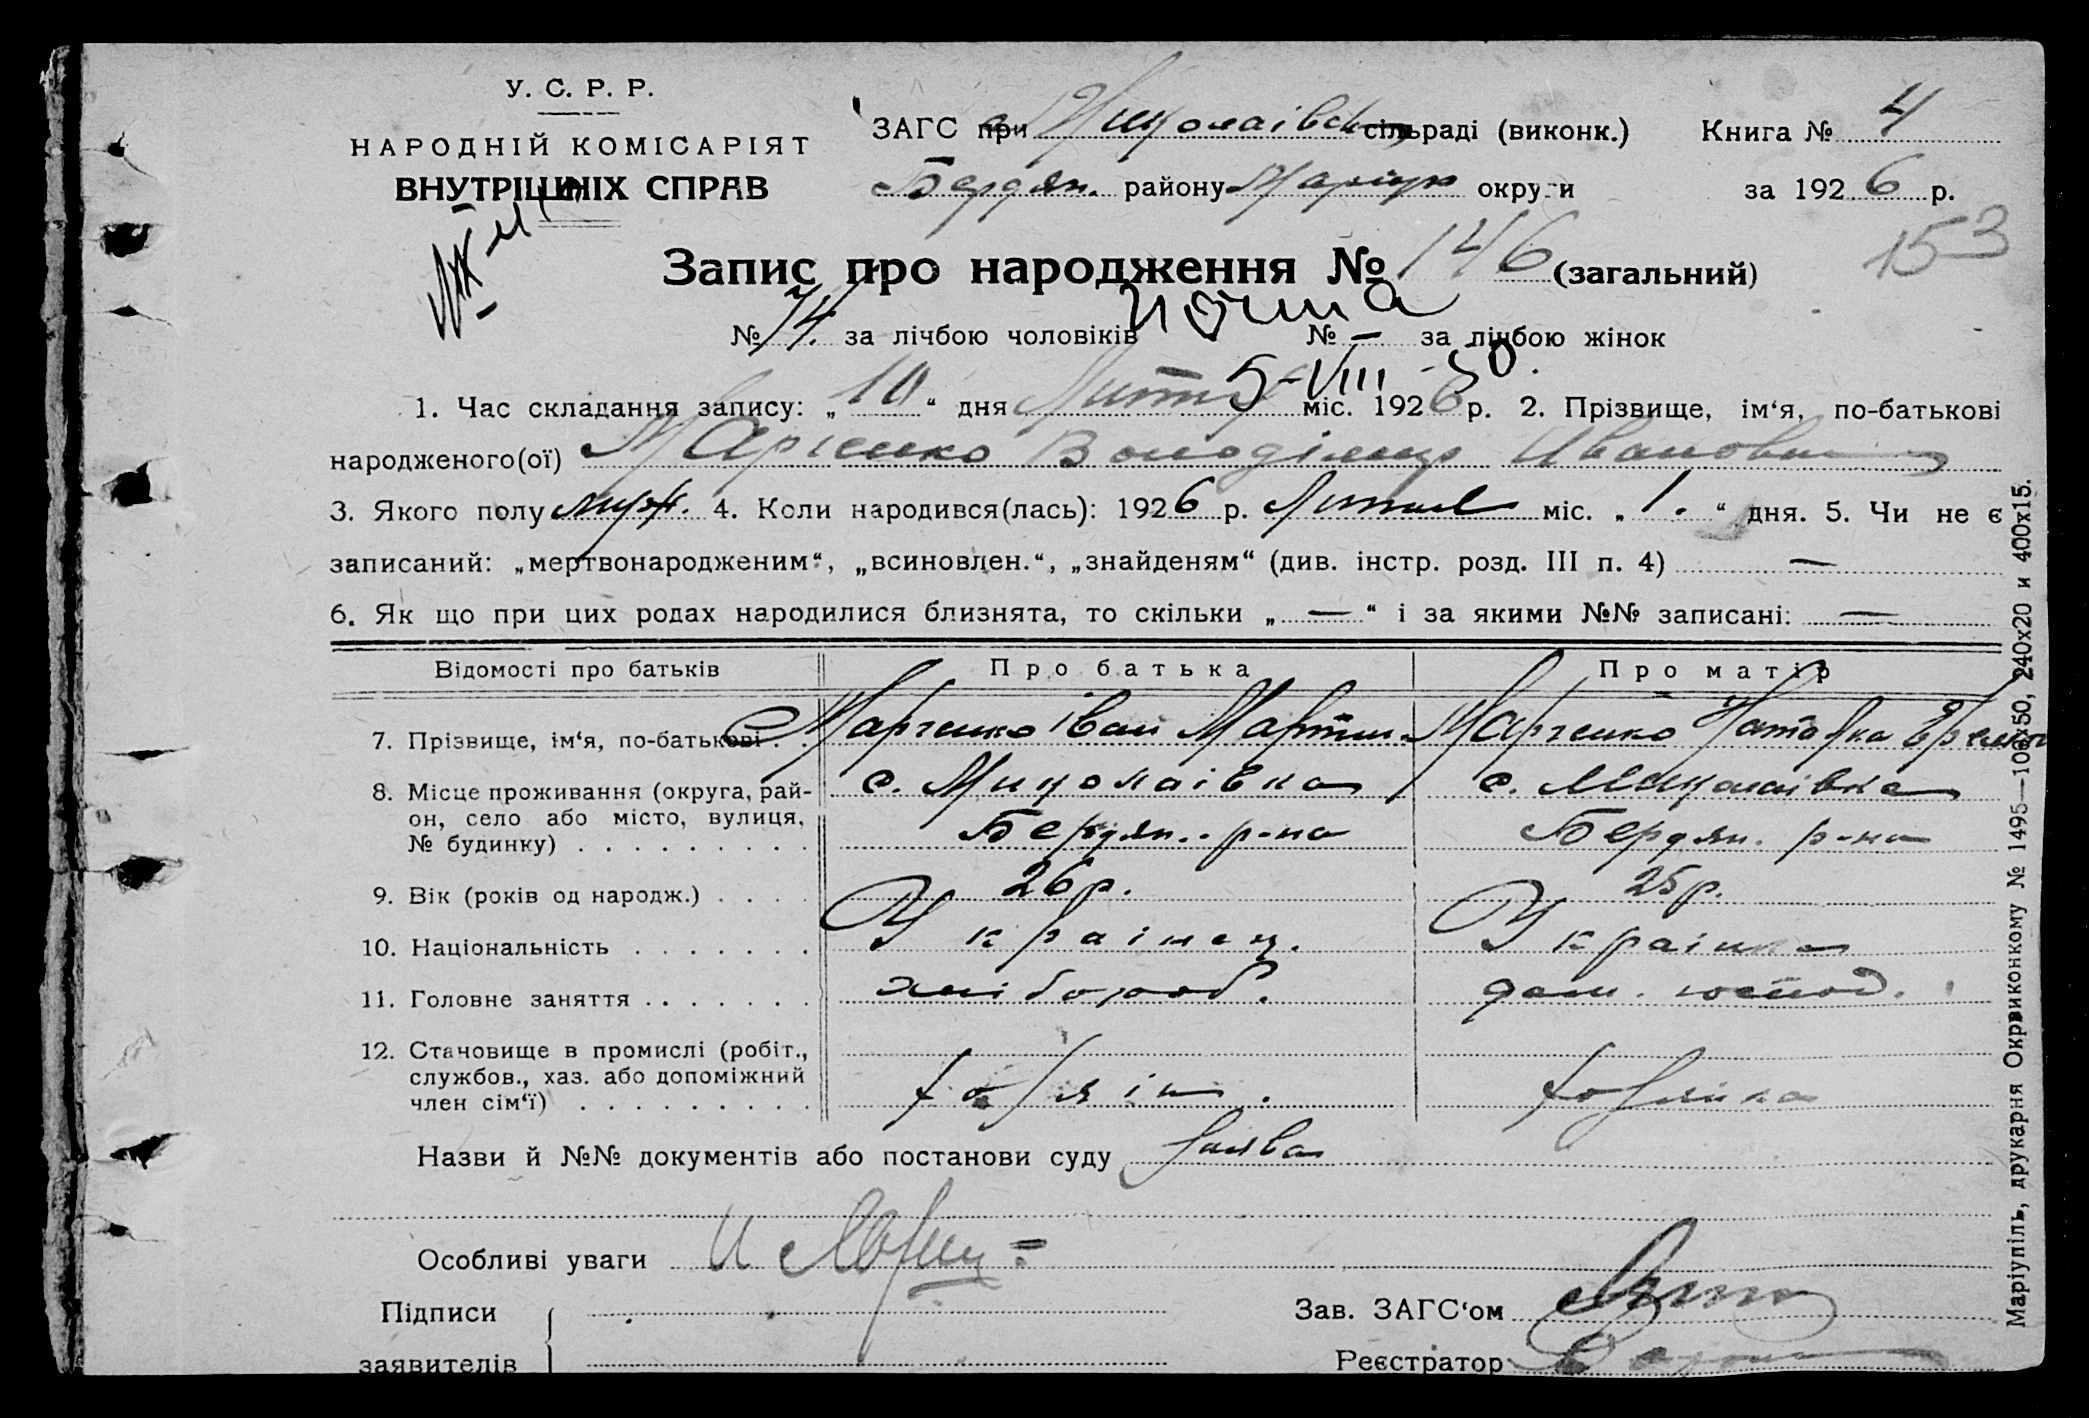 У. С. Р. Р.
НАРОДНІЙ КОМІСАРІЯТ
ВНУТРІШНІХ СПРАВ
ЗАГС при Миколаівськ сільраді (виконк.) Книга № 4
Бердян. району Маріуп округи за 1926 р.
153
Запис про народження № 146 (загальний)
№ 74. за лічбою чоловіків № — за лічбою жінок
почта
5-VIII-30.
1. Час складання запису: „10“ дня Лютня міс. 1926 р. 2. Прізвище, ім‘я, по-батькові
народженого(ої) Марченко Володімир Иванович
3. Якого полу муж. 4. Коли народився(лась): 1926 р. Лютня міс. „1.“ дня. 5. Чи не є
записаний: „мертвонародженим“, „всиновлен.“, „знайденям“ (див. інстр. розд. III п. 4) —
6. Як що при цих родах народилися близнята, то скільки „—“ і за якими №№ записані: —
Відомості про батьків Про батька Про матір
7. Прізвище, ім‘я, по-батькові . . Марченко Іван Мартин. Марченко Наталка
8. Місце проживання (округа, рай-он, село або місто, вулиця, № будинку) . . . . . . . . . с. Миколаівка Бердян. р-на с. Миколаівка Бердян. р-на
9. Вік (років од народж.) . . . . 26 р. 25 р.
10. Національність . . . . . . . Украінец. Украінка
11. Головне заняття . . . . . . . хлібороб. дом. господ.
12. Становище в промислі (робіт., службов., хаз. або допоміжний член сім‘ї) . . . . . . . . .
Назви й №№ документів або постанови суду Заява
Особливі уваги
Підписи
заявителів
Зав. ЗАГС‘ом
Реєстратор
Маріупіль, друкарня Окрвиконкому № 1495—100х50, 240х20 и 400х15.